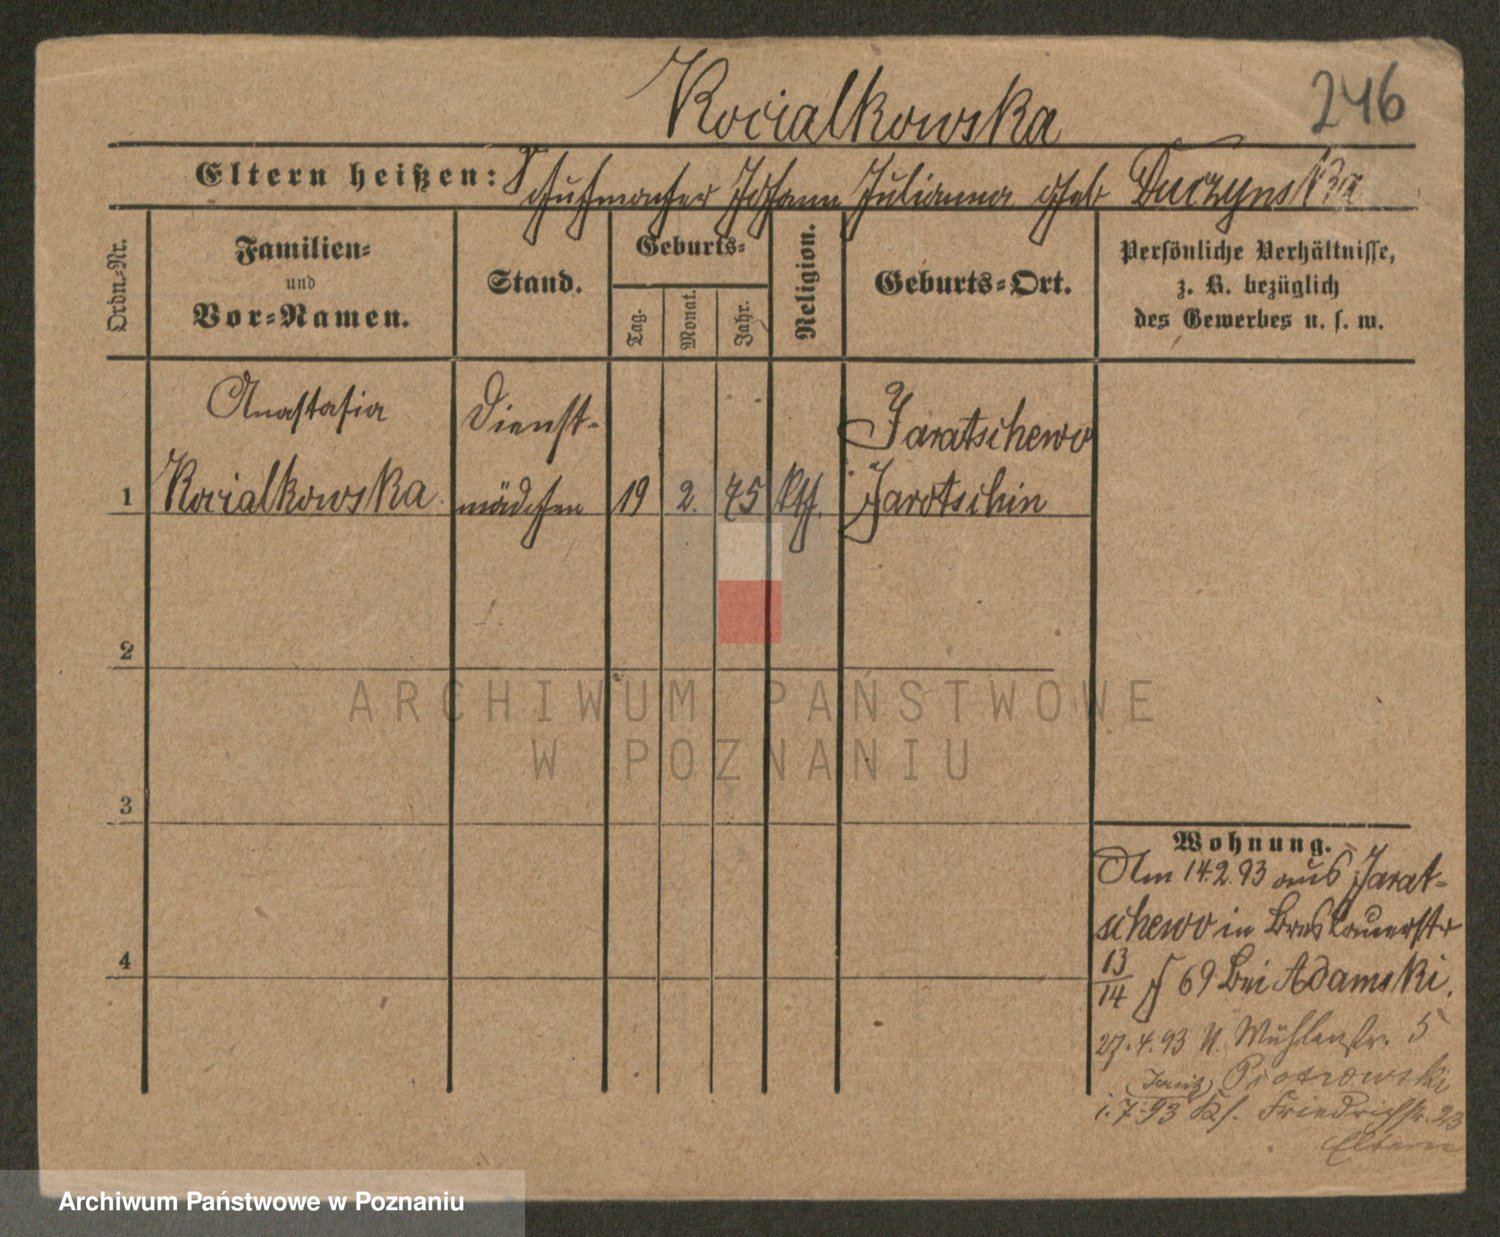 Kocialkowska
246
Eltern heißen: Schuhmacher Johann Julianna geb Duczynska
Ordn.-Nr.
Familien-
und
Vor-Namen.
Stand.
Geburts-
Tag.
Monat.
Jahr.
Religion.
Geburts-Ort.
Persönliche Verhältnisse,
z. B. bezüglich
des Gewerbes u. s. w.
Anastasia
Dienst-
Jaratschewo
1 Kocialkowska mädchen 19 2. 75 kth. Jarotschin
2
3
4
Wohnung.
Am 14.2.93 aus Jarat-
schewo in Breslauerstr
13/14 69 bei Adamski.
27.4.93 N. Mühlenstr. 5
Piotrowski
1.7.93 Friedrichstr. 23
Eltern
ARCHIWUM PAŃSTWOWE
W POZNANIU
Archiwum Państwowe w Poznaniu